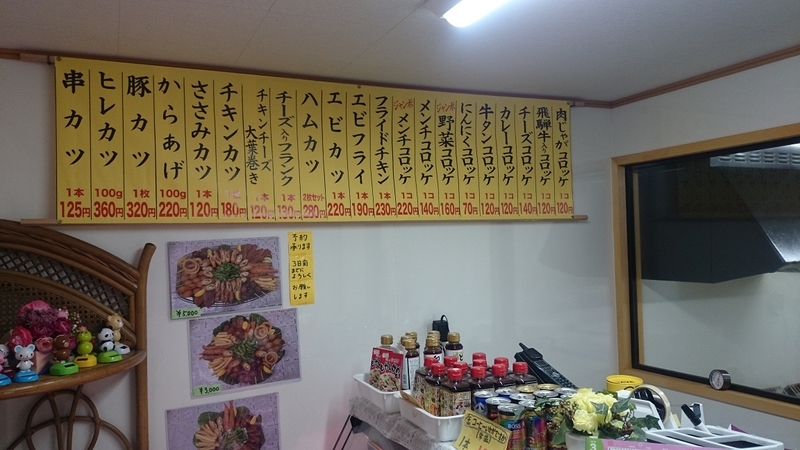 肉じゃがコロッケ 1コ 120円
飛騨牛入りコロッケ 1コ 120円
チーズコロッケ 1コ 140円
カレーコロッケ 1コ 120円
牛タンコロッケ 1コ 120円
にんにくコロッケ 1コ 70円
ジャンボ野菜コロッケ 1コ 160円
メンチコロッケ 1コ 140円
ジャンボメンチコロッケ 1コ 220円
フライドチキン 1本 230円
エビフライ 1本 190円
エビカツ 1本 220円
ハムカツ 2枚セット 280円
チーズ入りフランク 1本 130円
チキンチーズ大葉巻き 1本 120円
チキンカツ 180円
ささみカツ 1本 120円
からあげ 100g 220円
豚カツ 1枚 320円
ヒレカツ 100g 360円
串カツ 1本 125円
予約
承ります
3日前
までに
よろしく
お願い
します
¥5,000
¥3,000
BOSS